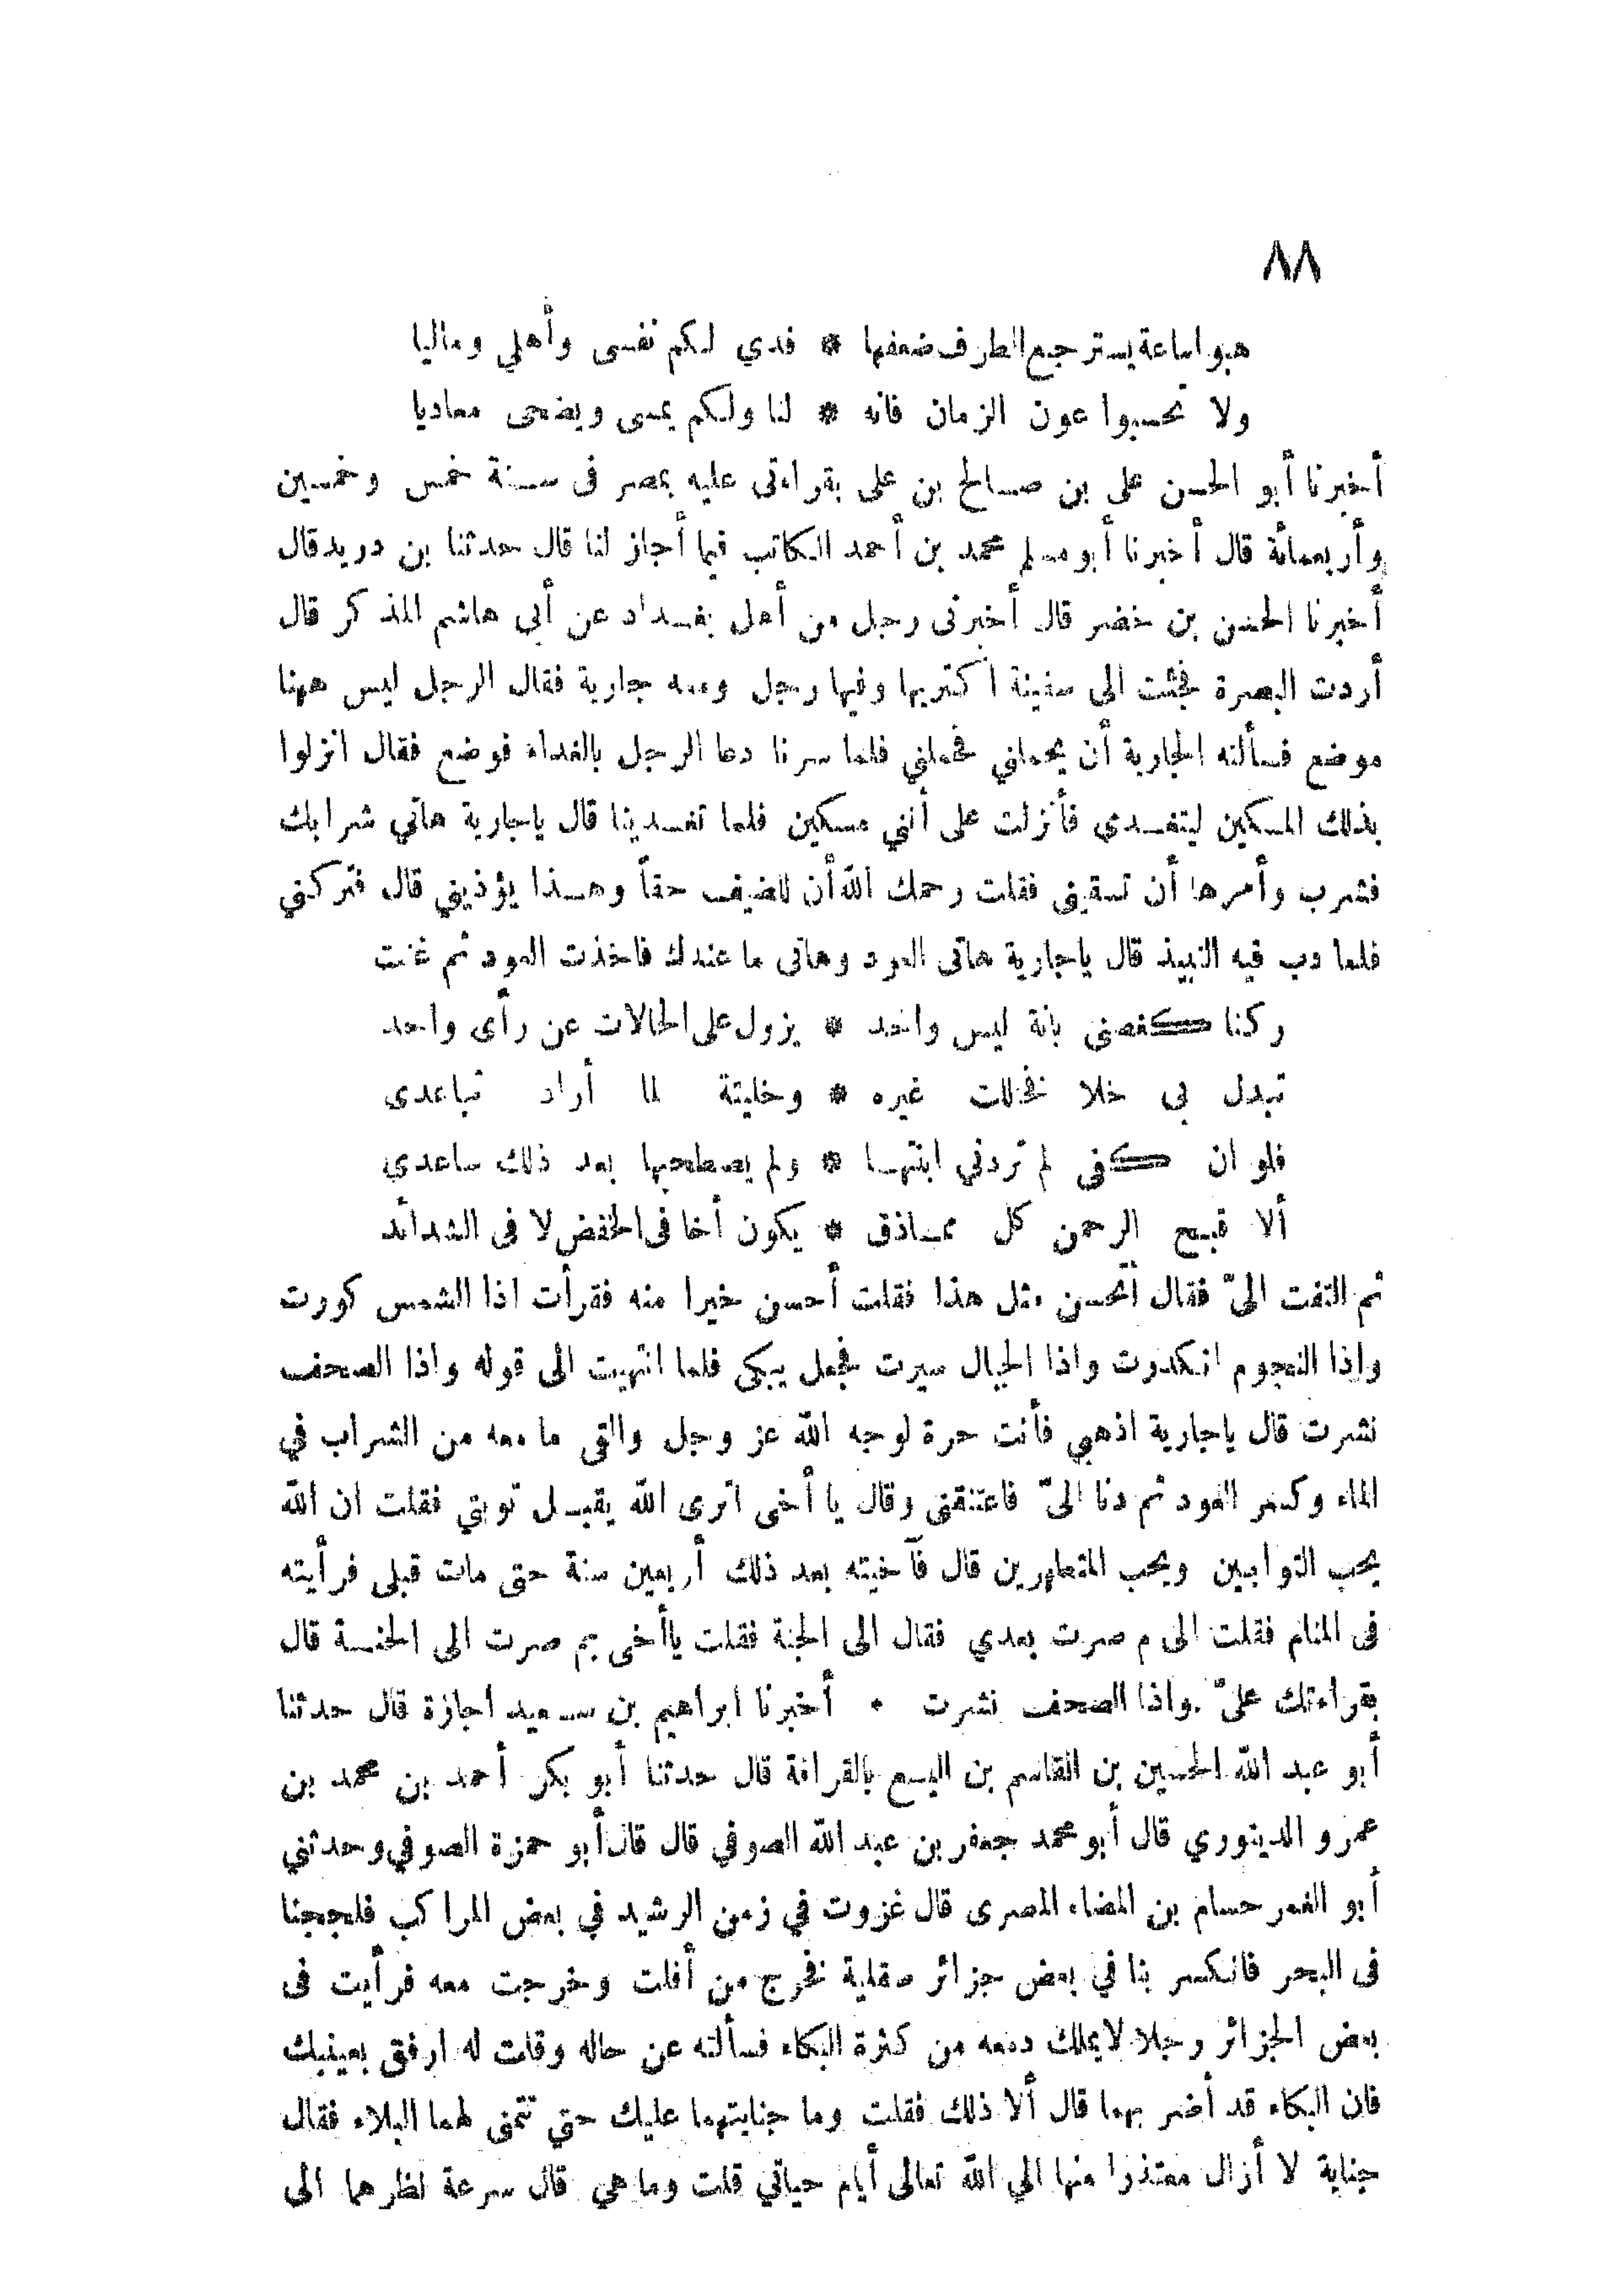 ٨٨
هبوا ساعة يسترجع الطرف ضعفها * فدي لكم نفسى وأهلي وماليا
ولا تحسبوا عون الزمان فانه * لنا ولكم يمسى ويضحى معاديا
أخبرنا أبو الحسن على بن صالح بن على بقراءتى عليه بمصر فى سنة خمس وخمسين
وأربعمائة قال أخبرنا أبو مسلم محمد بن أحمد الكاتب فيما أجاز لنا قال حدثنا بن دريد قال
أخبرنا الحسن بن خضر قال أخبرنى رجل من أهل بغداد عن أبي هاشم المذكر قال
أردت البصرة فجئت الى سفينة اكتريها وفيها رجل ومعه جارية فقال الرجل ليس ههنا
موضع فسألته الجارية أن يحملني فحملني فلما سرنا دعا الرجل بالغداء فوضع فقال انزلوا
بذلك المسكين ليتغدي فأنزلت على أنني مسكين فلما تغدينا قال ياجارية هاتي شرابك
فشرب وأمرها أن تسقينى فقلت رحمك الله أن للضيف حقاً وهذا يؤذيني قال فتركني
فلما دب فيه النبيذ قال ياجارية هاتى العود وهاتى ما عندك فاخذت العود ثم غنت
ركنا كغصنى بانة ليس واحد * يزول على الحالات عن رأى واحد
تبدل بى خلا فخاللت غيره * وخليتة لما أراد تباعدى
فلو ان كفى لم تردني ابنتها * ولم يصطحبها بعد ذلك ساعدي
ألا قبح الرحمن كل مماذق * يكون أخا فى الخفض لا فى الشدائد
ثم التفت الىّ فقال أتحسن مثل هذا فقلت أحسن خيرا منه فقرأت اذا الشمس كورت
واذا النجوم انكدرت واذا الجبال سيرت فجعل يبكى فلما انتهيت الى قوله واذا الصحف
نشرت قال ياجارية اذهبي فأنت حرة لوجه الله عز وجل والقى ما معه من الشراب في
الماء وكسر العود ثم دنا الىّ فاعتنقنى وقال يا أخى اترى الله يقبل توبتي فقلت ان الله
يحب التوابين ويحب المتطهرين قال فآخيته بعد ذلك أربعين سنة حتى مات قبلى فرأيته
فى المنام فقلت الى م صرت بعدي فقال الى الجنة فقلت ياأخى بم صرت الى الجنة قال
بقراءتك علىّ واذا الصحف نشرت • أخبرنا ابراهيم بن سعيد اجازة قال حدثنا
أبو عبد الله الحسين بن القاسم بن اليسع بالقرافة قال حدثنا أبو بكر أحمد بن محمد بن
عمرو الدينوري قال أبو محمد جعفر بن عبد الله الصوفي قال قال أبو حمزة الصوفي وحدثني
أبو الغمر حسام بن المضاء المصرى قال غزوت في زمن الرشيد في بعض المراكب فلججنا
فى البحر فانكسر بنا في بعض جزائر صقلية فخرج من أفلت وخرجت معه فرأيت فى
بعض الجزائر رجلا لايملك دمعه من كثرة البكاء فسألته عن حاله وقلت له ارفق بعينيك
فان البكاء قد أضر بهما قال ألا ذلك فقلت وما جنايتهما عليك حتي تتمنى لهما البلاء فقال
جناية لا أزال معتذرا منها الي الله تعالى أيام حياتي قلت وما هي قال سرعة نظرهما الى